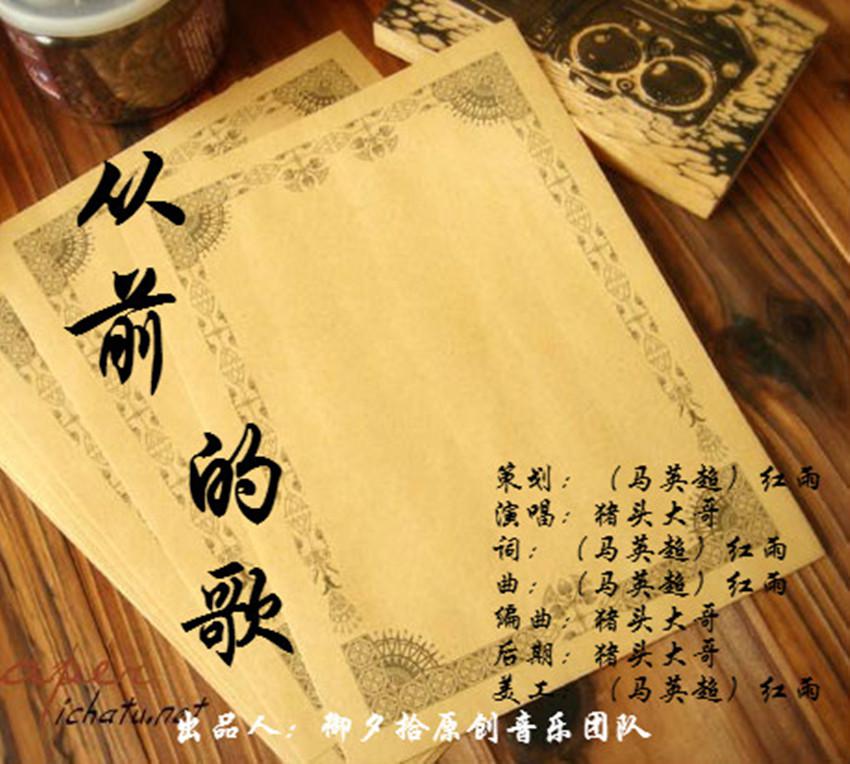 从前的歌
策划：（马英超）红雨
演唱：猪头大哥
词：（马英超）红雨
曲：（马英超）红雨
编曲：猪头大哥
后期：猪头大哥
美工：（马英超）红雨
aper
ichatu.net
出品人：御夕拾原创音乐团队